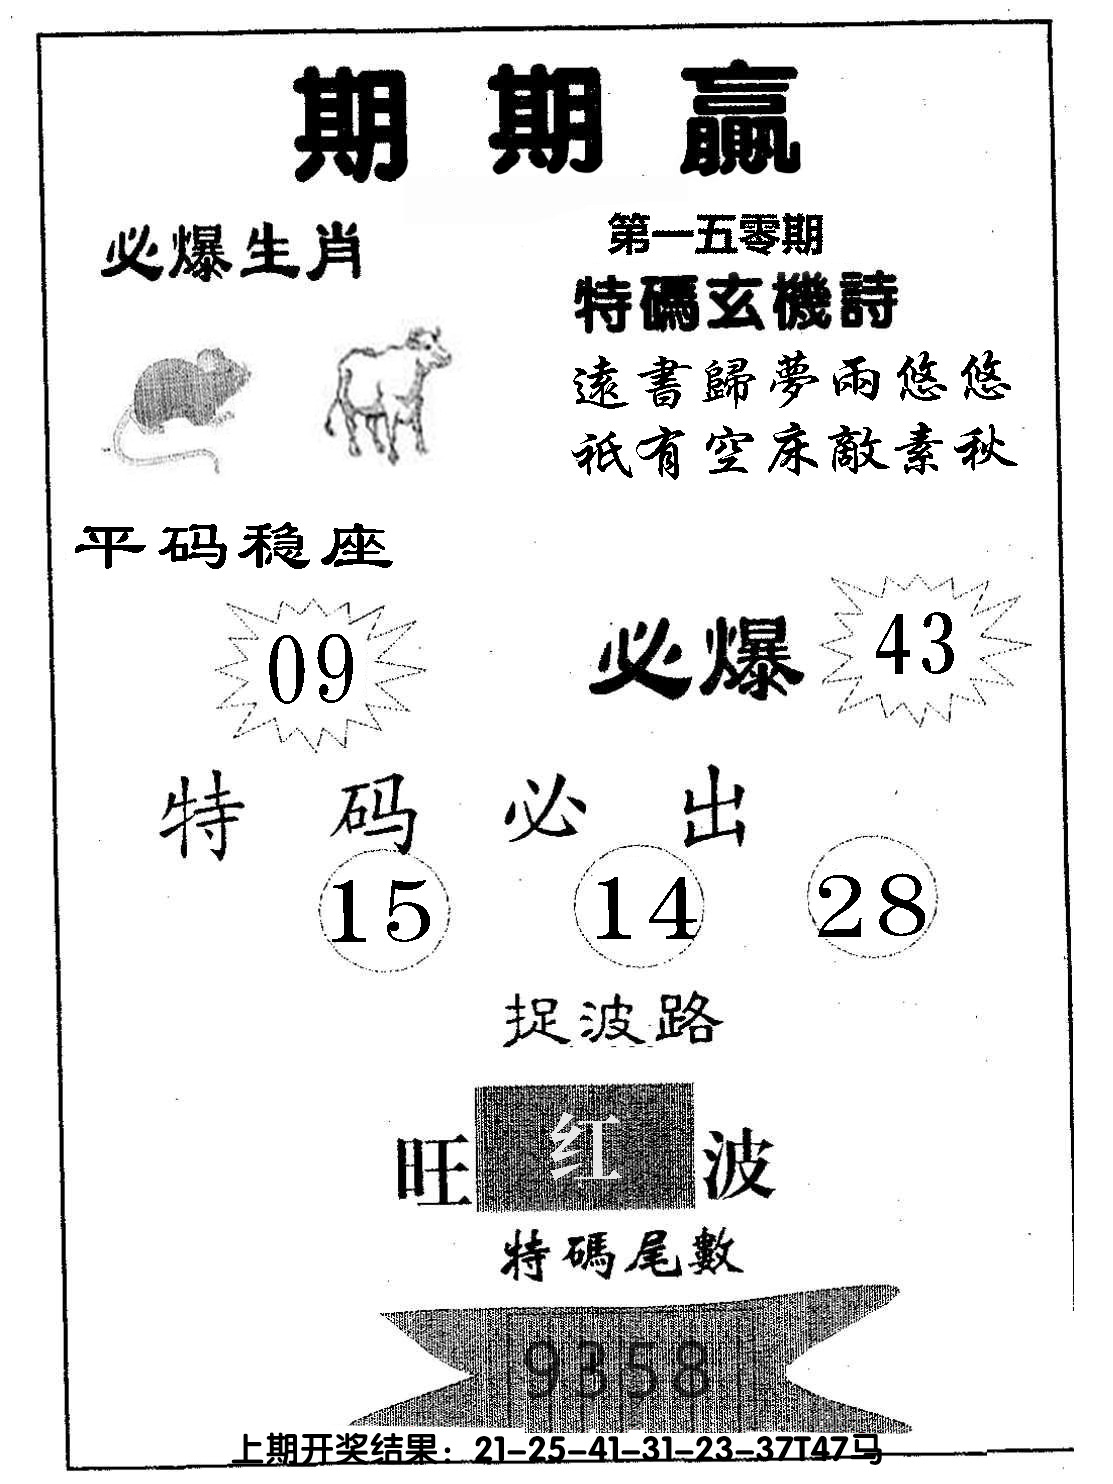 期期赢
必爆生肖
第一五零期
特碼玄機詩
遠書歸夢兩悠悠
祗有空床敵素秋
平码稳座
09
必爆
43
特码必出
15 14 28
捉波路
旺红波
特碼尾數
9358
上期开奖结果：21-25-41-31-23-37T47马